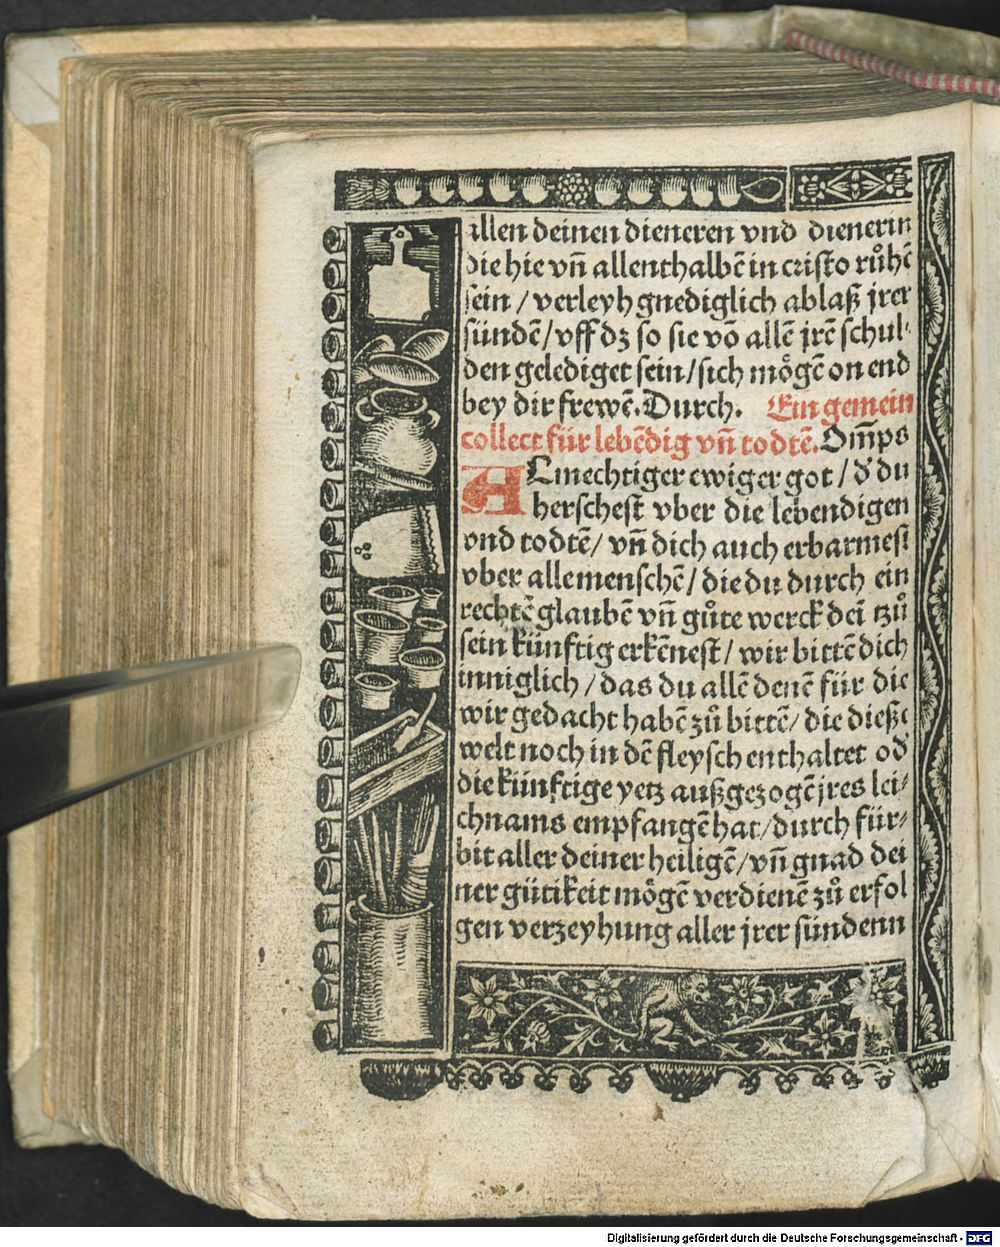 allen deinen dieneren vnd dienerin
die hie vn̄ allenthalbē in cristo růhē
sein / verleyh gnediglich ablaß jrer
sündē / vff dz so sie vō allē jrē schul-
den gelediget sein / sich mo̊gē on end
bey dir frewē. Durch. Ein gemein
collect für lebēdig vn̄ todtē. Om̄ps
ALmechtiger ewiger got / d' du
herschest vber die lebendigen
vnd todtē / vn̄ dich auch erbarmest
vber alle menschē / die du durch ein
rechtē glaubē vn̄ gůte werck dei tzů
sein künftig erkēnest / wir bittē dich
inniglich / das du allē denē für die
wir gedacht habē zů bittē / die dieße
welt noch in dē fleysch enthaltet od'
die künftige yetz außgezogē jres lei-
chnams empfangē hat / durch für-
bit aller deiner heiligē / vn̄ gnad dei
ner gütikeit mo̊gē verdienē zů erfol
gen verzeyhung aller jrer sündenn
Digitalisierung gefördert durch die Deutsche Forschungsgemeinschaft - DFG